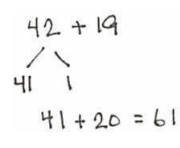 42 + 19
41 1
41 + 20 = 61